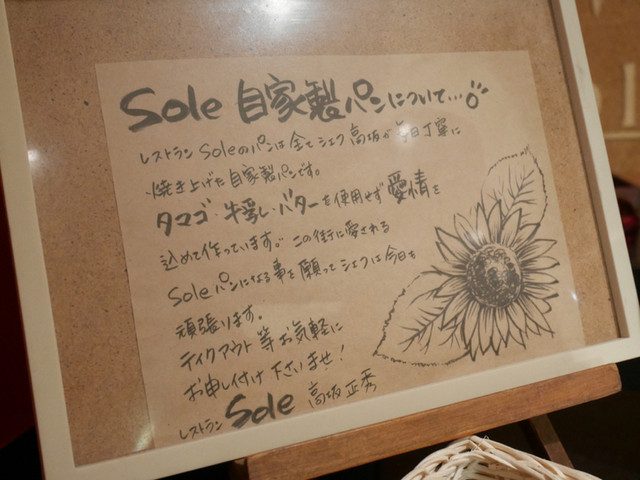 Sole 自家製パンについて…
レストランSoleのパンは全てシェフ高坂が毎日丁寧に
焼き上げた自家製パンです。
タマゴ・牛乳・バターを使用せず愛情を
込めて作っています。この街に愛される
Soleパンになる事を願ってシェフは今日も
頑張ります。
テイクアウト等お気軽に
お申し付け下さいませ!
レストラン Sole 高坂正秀